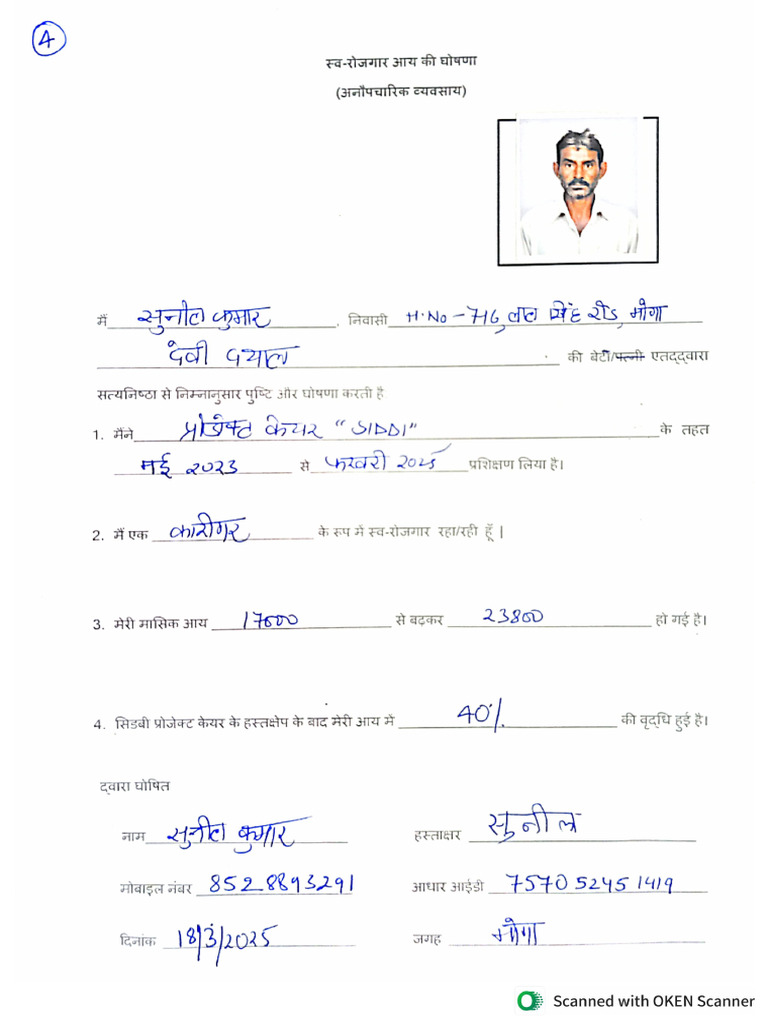 4
स्व-रोजगार आय की घोषणा
(अनौपचारिक व्यवसाय)
मैं सुनील कुमार, निवासी H.No - 716, लाल सिंह रोड, मोगा
देवी दयाल की बेटी/पत्नी एतद्द्वारा
सत्यनिष्ठा से निम्नानुसार पुष्टि और घोषणा करती है
1. मैंने प्रोजेक्ट केयर "SIDDI" के तहत
मई 2023 से फरवरी 2025 प्रशिक्षण लिया है।
2. मैं एक कारीगर के रूप में स्व-रोजगार रहा/रही हूँ |
3. मेरी मासिक आय 17000 से बढ़कर 23800 हो गई है।
4. सिडबी प्रोजेक्ट केयर के हस्तक्षेप के बाद मेरी आय में 40% की वृद्धि हुई है।
द्वारा घोषित
नाम सुनील कुमार हस्ताक्षर सुनील
मोबाइल नंबर 8528893291 आधार आईडी 7570 5245 1419
दिनांक 18/3/2025 जगह मोगा
Scanned with OKEN Scanner